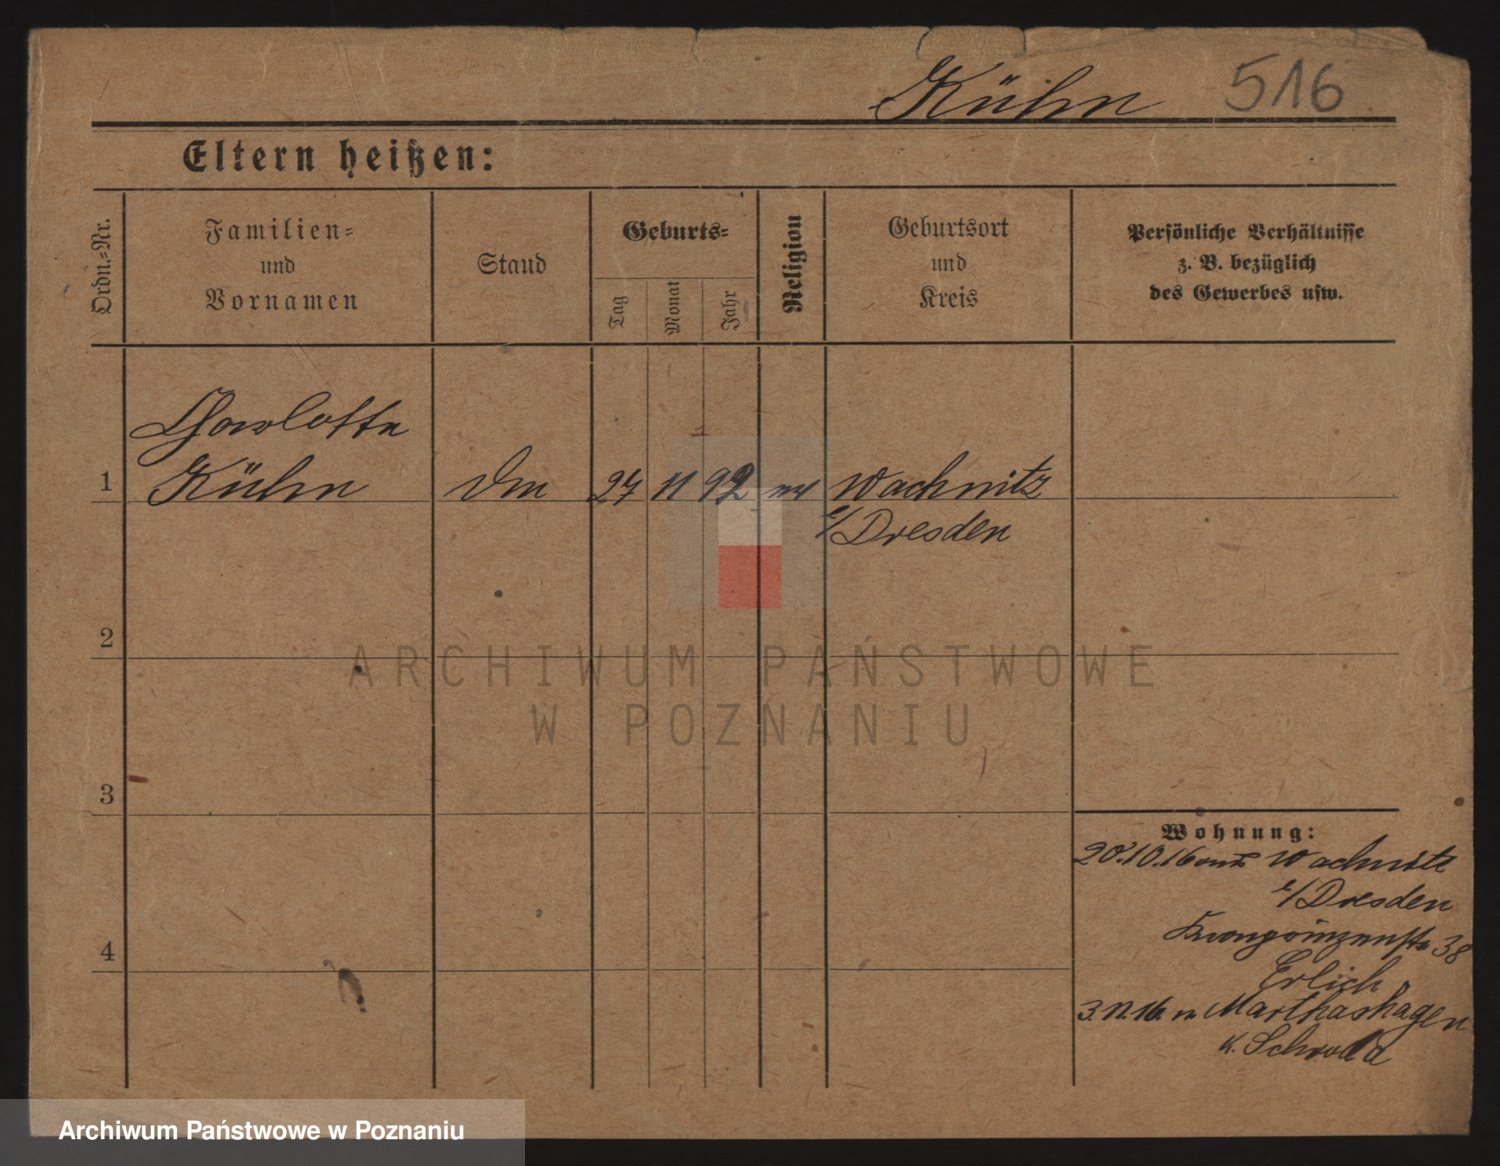 Kühn 516
Eltern heißen:
Ordn.-Nr.
Familien-
und
Vornamen
Stand
Geburts-
Tag
Monat
Jahr
Religion
Geburtsort
und
Kreis
Persönliche Verhältnisse
z. B. bezüglich
des Gewerbes usw.
Charlotte
1 Kühn 27 11 92 Wachwitz
b/Dresden
2
ARCHIWUM PAŃSTWOWE
W POZNANIU
3
Wohnung:
20.10.16 Wachwitz
b/Dresden
Kronprinzenstr 38
Erlich
4
3.11.16. n Marthashagen
K. Schroda
Archiwum Państwowe w Poznaniu